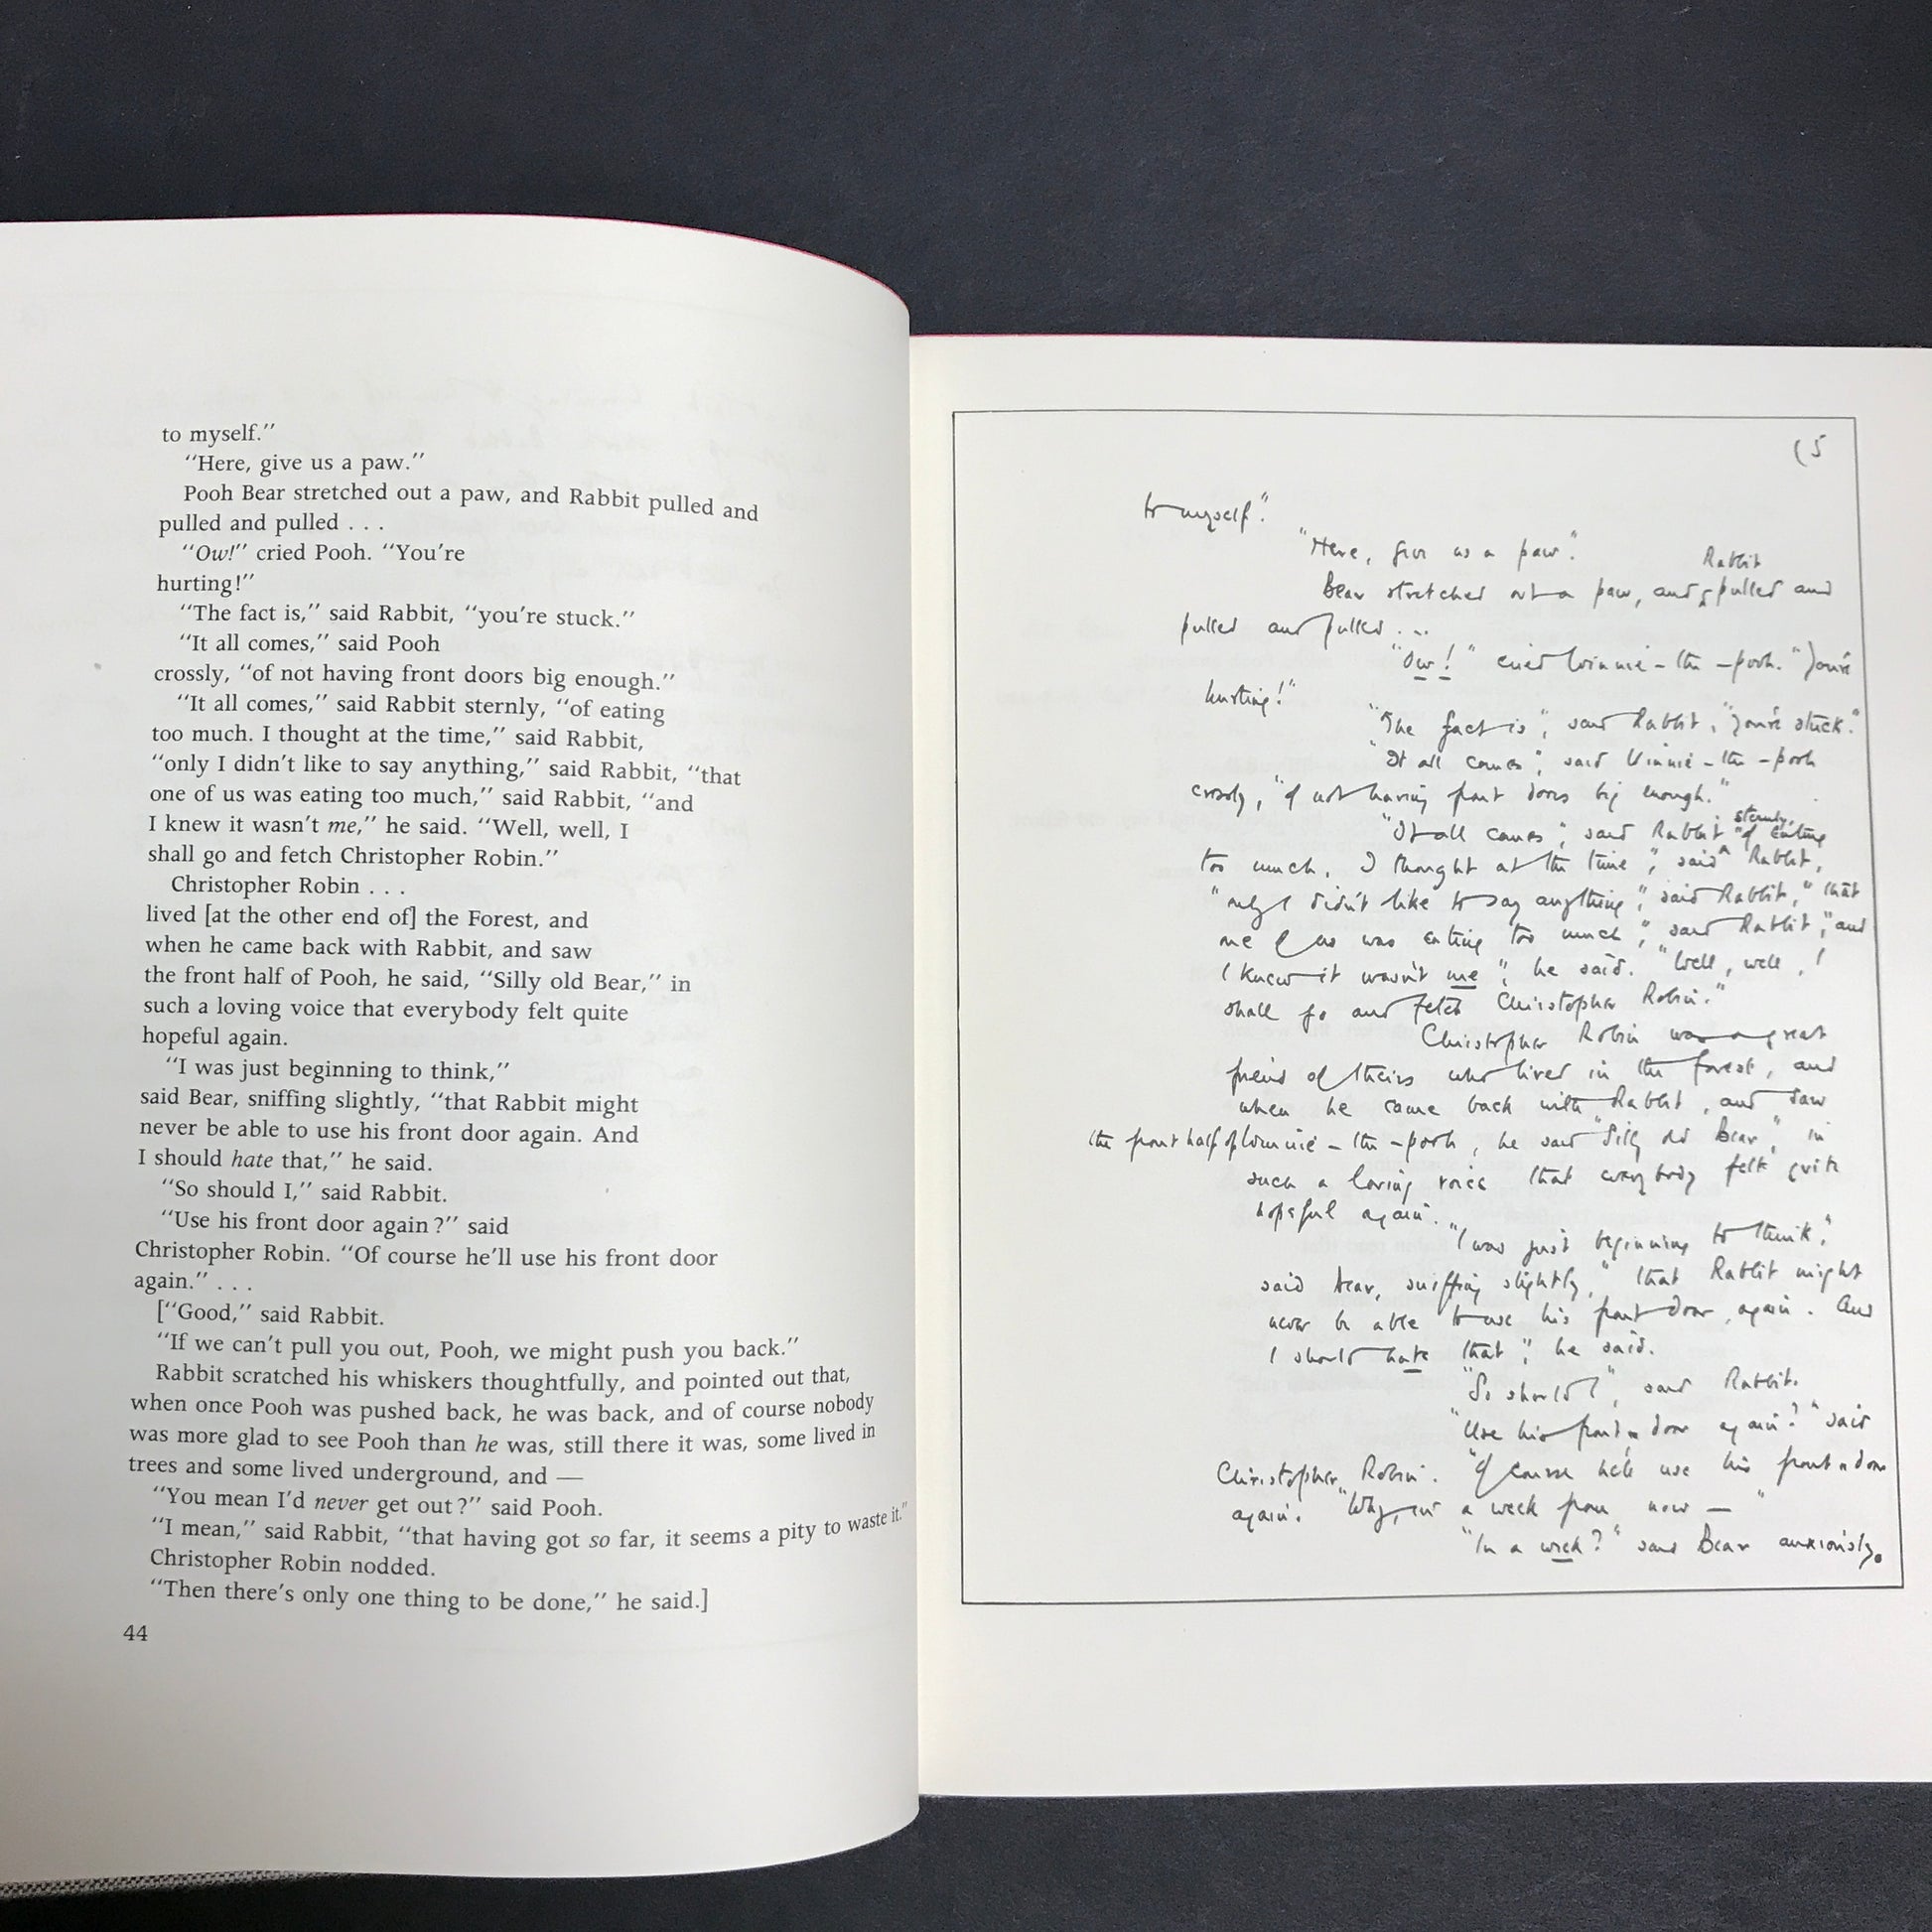 to myself.”
“Here, give us a paw.”
Pooh Bear stretched out a paw, and Rabbit pulled and
pulled and pulled . . .
“Ow!” cried Pooh. “You’re
hurting!”
“The fact is,” said Rabbit, “you’re stuck.”
“It all comes,” said Pooh
crossly, “of not having front doors big enough.”
“It all comes,” said Rabbit sternly, “of eating
too much. I thought at the time,” said Rabbit,
“only I didn’t like to say anything,” said Rabbit, “that
one of us was eating too much,” said Rabbit, “and
I knew it wasn’t me,” he said. “Well, well, I
shall go and fetch Christopher Robin.”
Christopher Robin . . .
lived [at the other end of] the Forest, and
when he came back with Rabbit, and saw
the front half of Pooh, he said, “Silly old Bear,” in
such a loving voice that everybody felt quite
hopeful again.
“I was just beginning to think,”
said Bear, sniffing slightly, “that Rabbit might
never be able to use his front door again. And
I should hate that,” he said.
“So should I,” said Rabbit.
“Use his front door again?” said
Christopher Robin. “Of course he’ll use his front door
again.” . . .
[“Good,” said Rabbit.
“If we can’t pull you out, Pooh, we might push you back.”
Rabbit scratched his whiskers thoughtfully, and pointed out that,
when once Pooh was pushed back, he was back, and of course nobody
was more glad to see Pooh than he was, still there it was, some lived in
trees and some lived underground, and —
“You mean I’d never get out?” said Pooh.
“I mean,” said Rabbit, “that having got so far, it seems a pity to waste it.”
Christopher Robin nodded.
“Then there’s only one thing to be done,” he said.]
44
(5
to myself".
"Here, give us a paw".
Rabbit
Bear stretched out a paw, and pulled and
pulled and pulled ...
"Ow!" cried Winnie-the-pooh. "You're
hurting!"
"The fact is", said Rabbit, "you're stuck."
"It all comes", said Winnie-the-pooh
crossly, "of not having front doors big enough."
sternly,
"It all comes", said Rabbit "of eating
too much. I thought at the time", said Rabbit,
"only I didn't like to say anything", said Rabbit, "that
one of us was eating too much", said Rabbit, "and
I knew it wasn't me", he said. "Well, well, I
shall go and fetch Christopher Robin."
Christopher Robin was a great
friend of theirs who lived in the forest, and
when he came back with Rabbit, and saw
the front half of Winnie-the-pooh, he said "Silly old Bear", in
such a loving voice that everybody felt quite
hopeful again.
"I was just beginning to think",
said bear, sniffing slightly, "that Rabbit might
never be able to use his front door again. And
I should hate that", he said.
"So should I", said Rabbit.
"Use his front door again?" said
Christopher Robin. "Of course he'll use his front door
again. Why, in a week from now — "
"In a week?" said Bear anxiously.